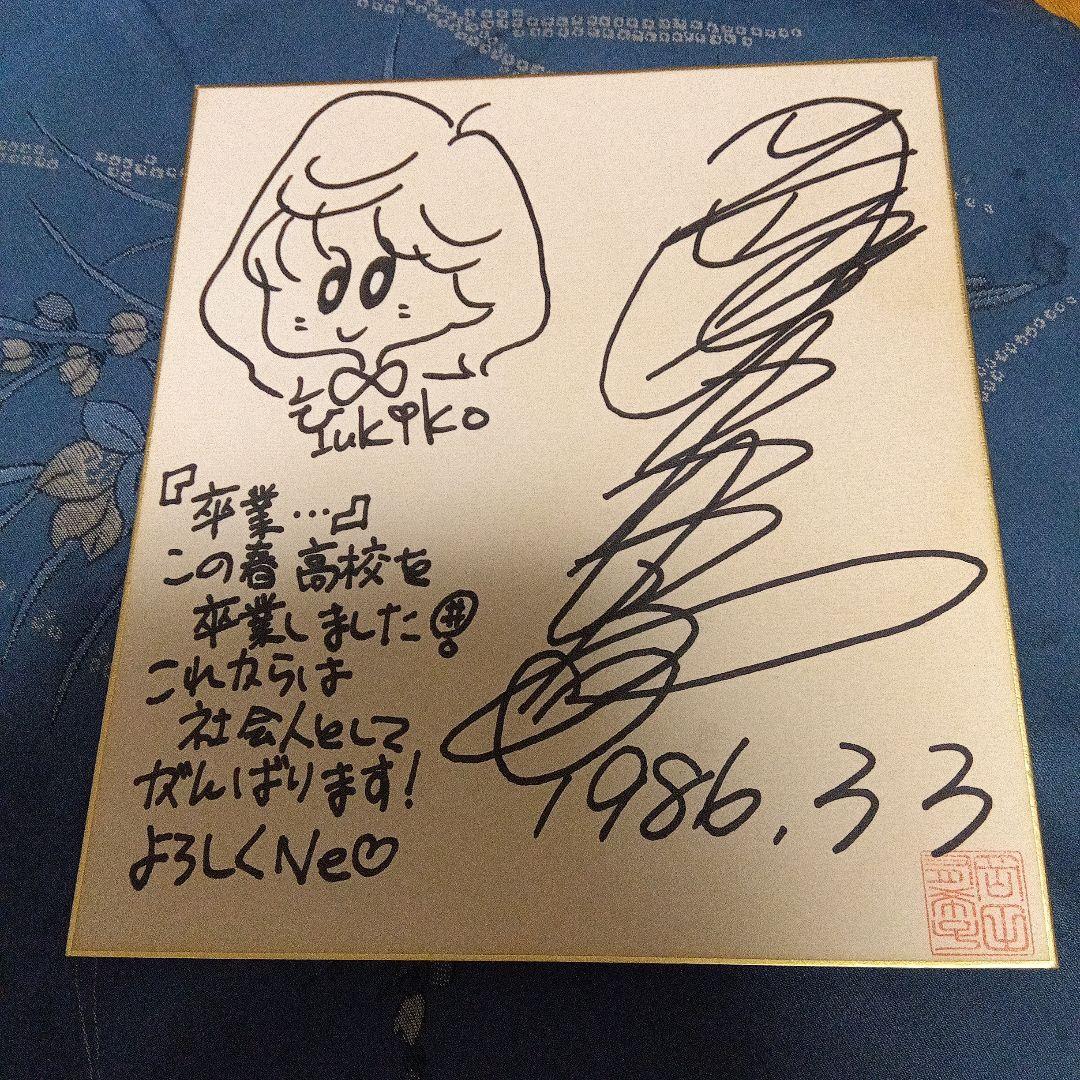 Yukiko
『卒業…』
この春高校を
卒業しました!
これからは
社会人として
がんばります!
よろしくNe♡
1986.3 3